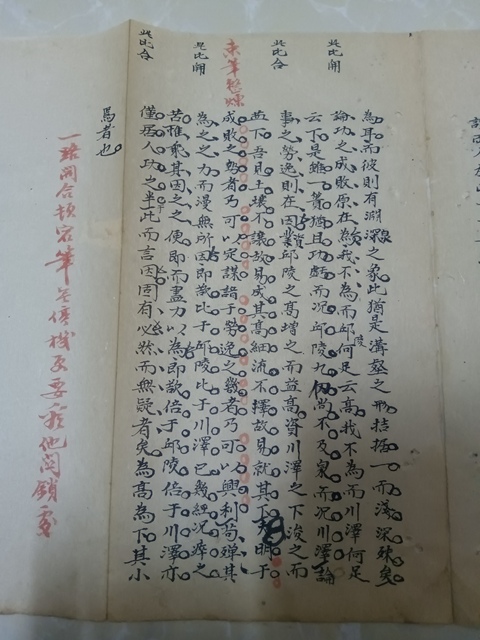 此比開
此比合
束筆整煉
是比開
此比合
為耳而彼則有淵源之象此猶是溝壑之形挂梅一而淺深殊矣
論功之成敗原在我不為而邱何足云高我不為而川澤何足
云下是雖一簣猶且功虧而况邱陵九仞尚不及泉而况川澤論
事之勞逸則在因業邱陵之高增之而益高資川澤之下浚之而
益下吾見土壤不讓故易成其高細流不擇故易就其下明于
成敗之勢者乃可以定謀諸于勞逸之幾者乃可以興利苟殫其
為之之力而漫無所因即欲比于邱陵比于川澤已幾經況瘁之
苦惟乘其因之之便即而盡力以為即欲倍于邱陵倍于川澤亦
僅居人功之半此而言因固有必然而無疑者矣為高為下其小
焉者也
一路開合頓宕筆無停機及要看他關鎖處